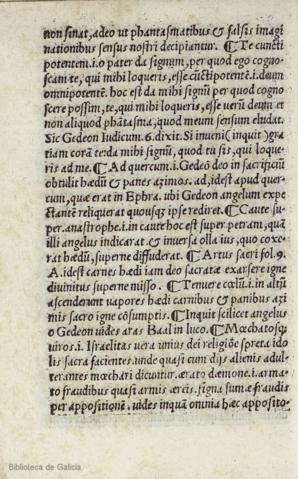 non sinat, adeo ut phantasmatibus & falsis imagi
nationibus sensus nostri decipiantur. ¶ Te cuncti
potentem .i. o pater da signum, per quod ego cogno-
scam te, qui mihi loqueris, esse cūctipotentē .i. deum
omnipotentē. hoc est da mihi signū per quod cogno
scere possim, te, qui mihi loqueris, esse verū deum et
non aliquod phātasma, quod meum sensum eludat.
Sic Gedeon Iudicum. 6. dixit. Si inueni (inquit) gra
tiam corā te: da mihi signū, quod tu sis, qui loque-
ris ad me. ¶ Ad quercum .i. Gedeō deo in sacrificiū
obtulit hædū & panes azimos. ad, id est apud quer-
cum, quæ erat in Ephra. ubi Gedeon angelum expe
ctantē reliquerat quousq; ipse rediret. ¶ Caute su-
per. anastrophe .i. in caute hoc est super petram, quā
illi angelus indicarat. & inuersa olla ius, quo coxe-
rat hædū, superne diffuderat. ¶ Artus sacri fol. 9.
A. id est carnes hædi iam deo sacratæ exarsere igne
diuinitus superne misso. ¶ Tenuere cœlū .i. in altū
ascenderunt vapores hædi carnibus & panibus azi
mis sacro igne cōsumptis. ¶ Inquit scilicet angelus
o Gedeon uides aras Baal in luco. ¶ Mœchatosq;
uiros .i. Israelitas vera unius dei religiōe spreta ido
lis sacra facientes. unde quasi cum dijs alienis adul-
terantes mœchari dicuntur. ærato dæmone .i. arma-
to fraudibus quasi armis æreis. signa sumæ fraudis
per appositionē. uides inquā omnia hæc apposito-
Biblioteca de Galicia